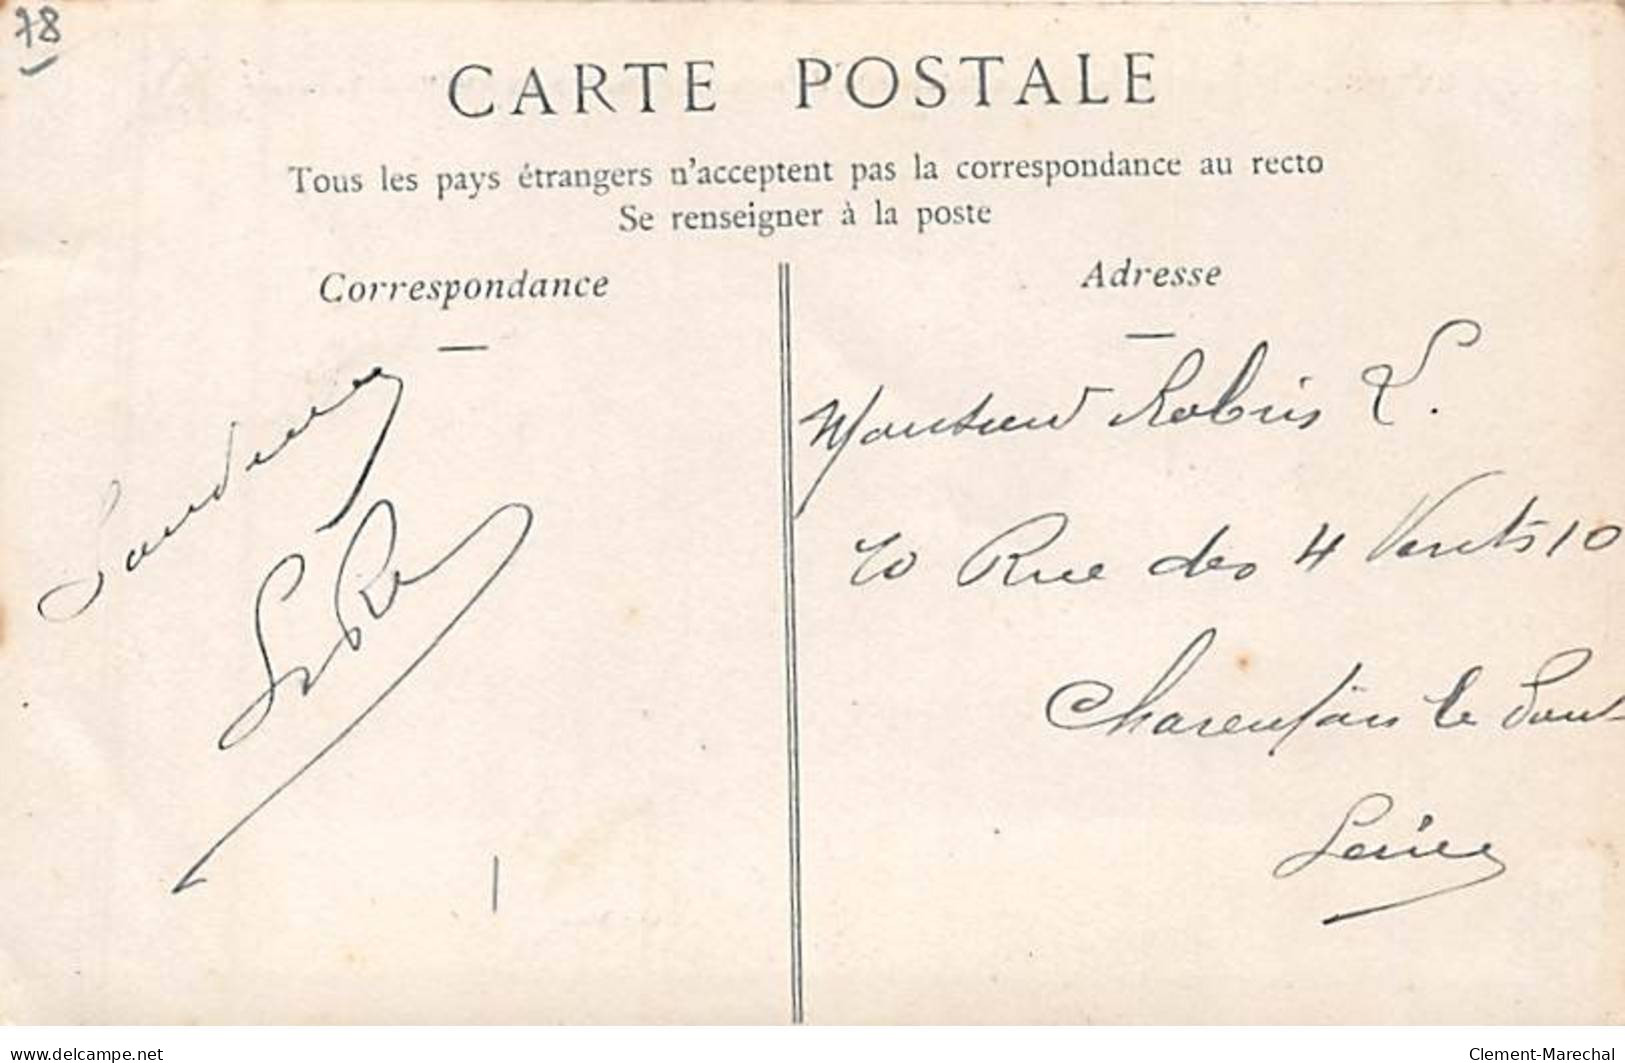 78
CARTE POSTALE
Tous les pays étrangers n'acceptent pas la correspondance au recto
Se renseigner à la poste
Correspondance
Adresse
Monsieur Robin L.
10 Rue des 4 Vents 10
Charenton le Pont
Seine
www.delcampe.net
Clement-Marechal